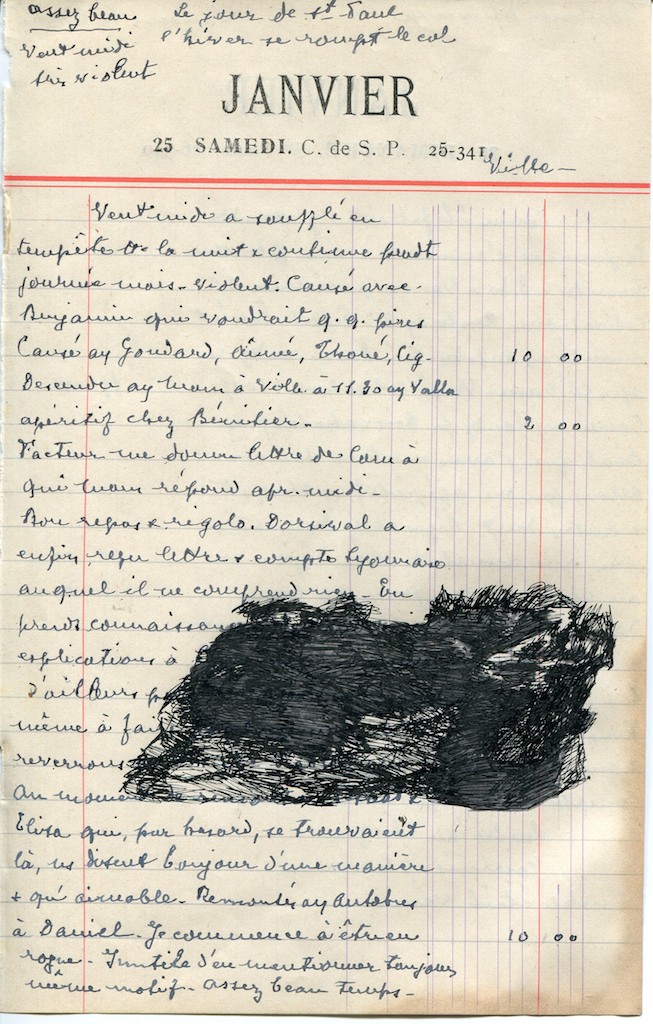 assez beau
Vent midi
très violent
Le jour de St Paul
l'hiver se rompt le col
JANVIER
25 SAMEDI. C. de S. P. 25-341
Ville -
Vent midi a soufflé en
tempête tte la nuit & continue pendt
journée mais - violent. Causé avec
Benjamin qui voudrait q.q. pires
Causé av Goudard, Aimé, cig. 10 00
Descendu av Mam à Ville à 11.30 av Valla
apéritif chez Béritier - 2 00
Facteur me donne lettre de
qui Mam répond apr. midi -
Bon repas & rigolo. Dorsival a
enfin reçu lettre & compte Lyonnais
auquel il ne comprend rien - En
prends
explications à
d'ailleurs
même à
revenons
Au moment de
Elisa qui, par hasard, se trouvaient
là, ns disent bonjour d'une manière
+ qu' aimable - Remontés av Autobus
à Daniel. Je commence à être en 10 00
rogne - Inutile d'en mentionner toujours
même motif - assez beau temps -